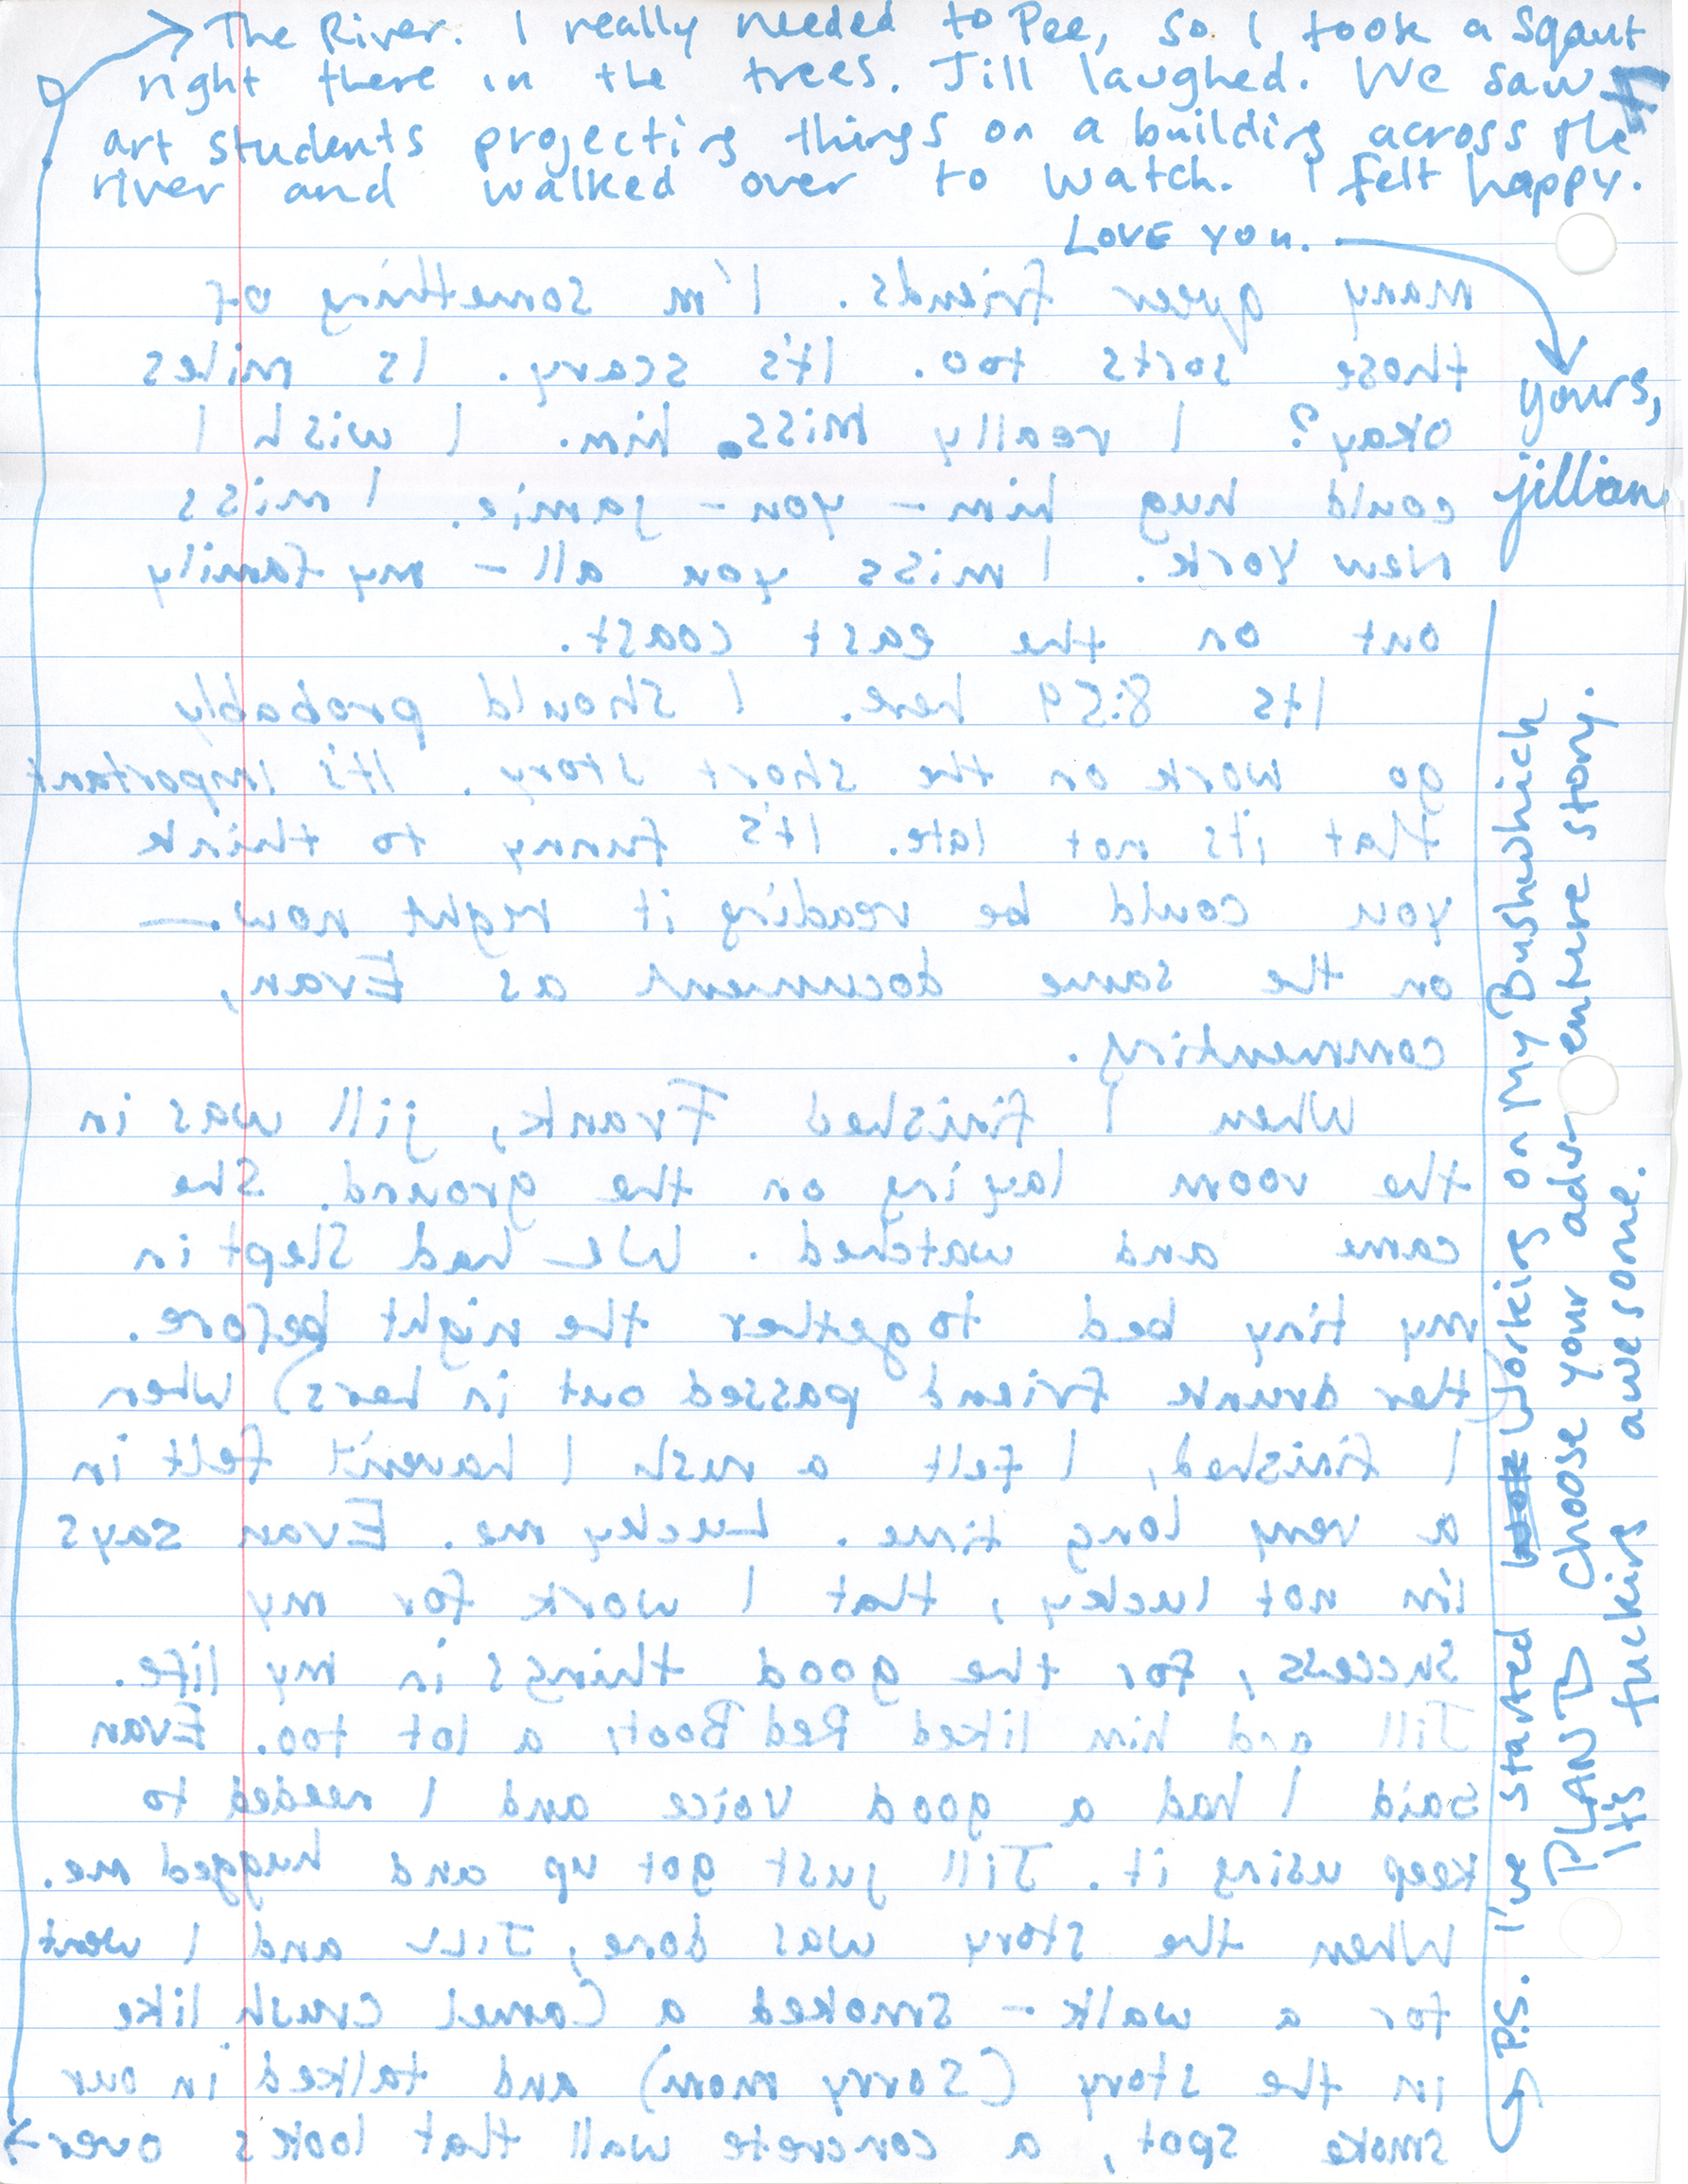 The River. I really needed to Pee, so I took a Sqaut
right there in the trees. Jill laughed. We saw
art students projecting things on a building across the
river and walked over to watch. I felt happy.
LOVE YOU.
yours,
jillian
P.S. I've started working on My Bushwhich
PLANTD choose your adventure story.
It's fucking awesome.
many queer friends. I'm something of
those sorts too. It's scary. Is miles
okay? I really miss him. I wish I
could hug him - you - jamie. I miss
New York. I miss you all - my family
out on the east coast.
Its 8:59 here. I should probably
go work on the short story. It's important
that its not late. It's funny to think
you could be reading it right now. —
on the same document as Evan,
commenting.
When I finished Frank, jill was in
the room laying on the ground. She
came and watched. We had slept in
my tiny bed together the night before.
(her drunk friend passed out in hers) when
I finished, I felt a rush I haven't felt in
a very long time. Lucky me. Evan says
i'm not lucky, that I work for my
success, for the good things in my life.
Jill and him liked Red Boots a lot too. Evan
said I had a good voice and I needed to
keep using it. Jill just got up and hugged me.
When the story was done, Jill and I went
for a walk - smoked a Camel crush like
in the story (Sorry mom) and talked in our
smoke spot, a concrete wall that looks over